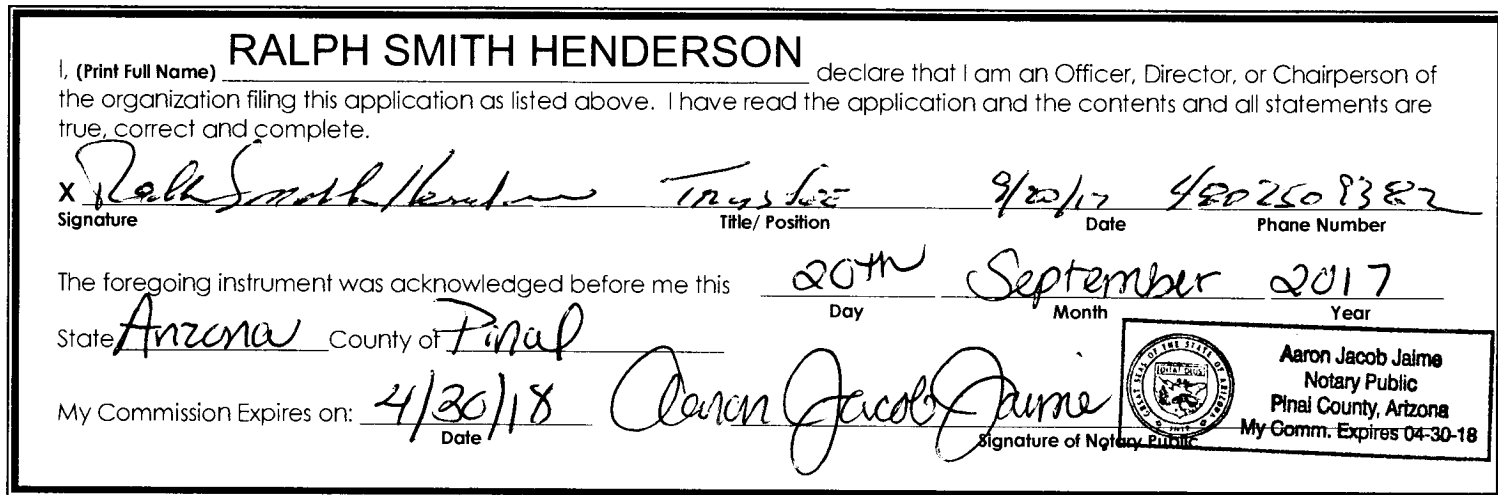 I, (Print Full Name) RALPH SMITH HENDERSON declare that I am an Officer, Director, or Chairperson of
the organization filing this application as listed above. I have read the application and the contents and all statements are
true, correct and complete.
X Ralph Smith Henderson Trustee 9/20/17 4802509382
Signature Title/ Position Date Phane Number
The foregoing instrument was acknowledged before me this 20th September 2017
Day Month Year
State Arizona County of Pinal
My Commission Expires on: 4/30/18 Aaron Jacob Jaime
Date Signature of Notary Public
GREAT SEAL OF THE STATE OF ARIZONA
DITAT DEUS
1912
Aaron Jacob Jaime
Notary Public
Pinal County, Arizona
My Comm. Expires 04-30-18